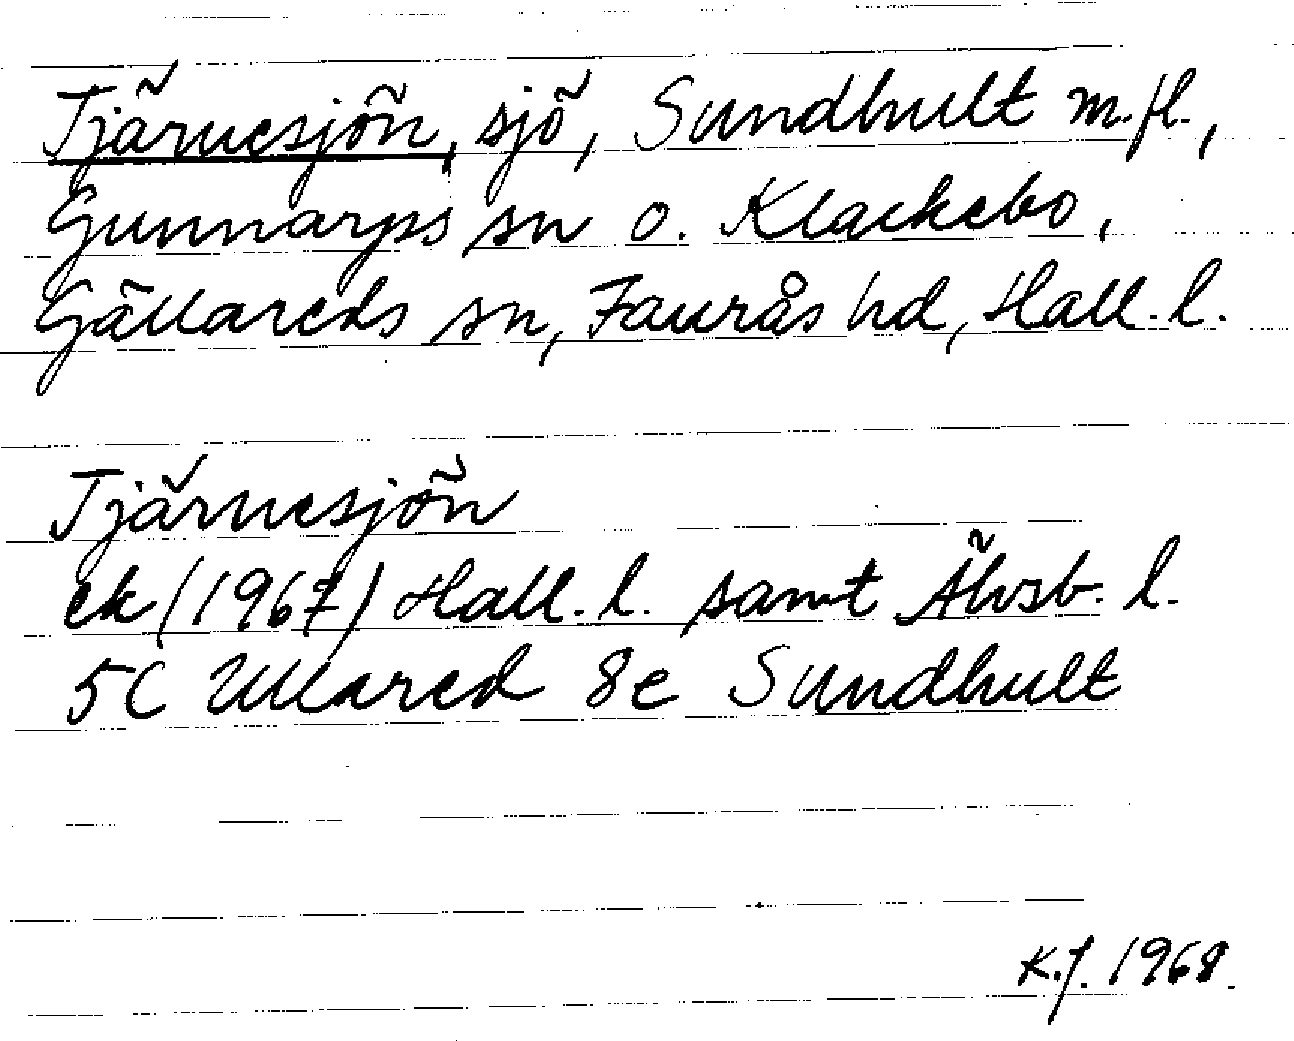 Tjärnesjön, sjö, Sundhult m.fl.,
Gunnarps sn o. Klackebo,
Gällareds sn, Faurås hd, Hall. l.
Tjärnesjön
ek (1967) Hall. l. samt Älvsb. l.
5C Ullared 8e Sundhult
K.J. 1968.